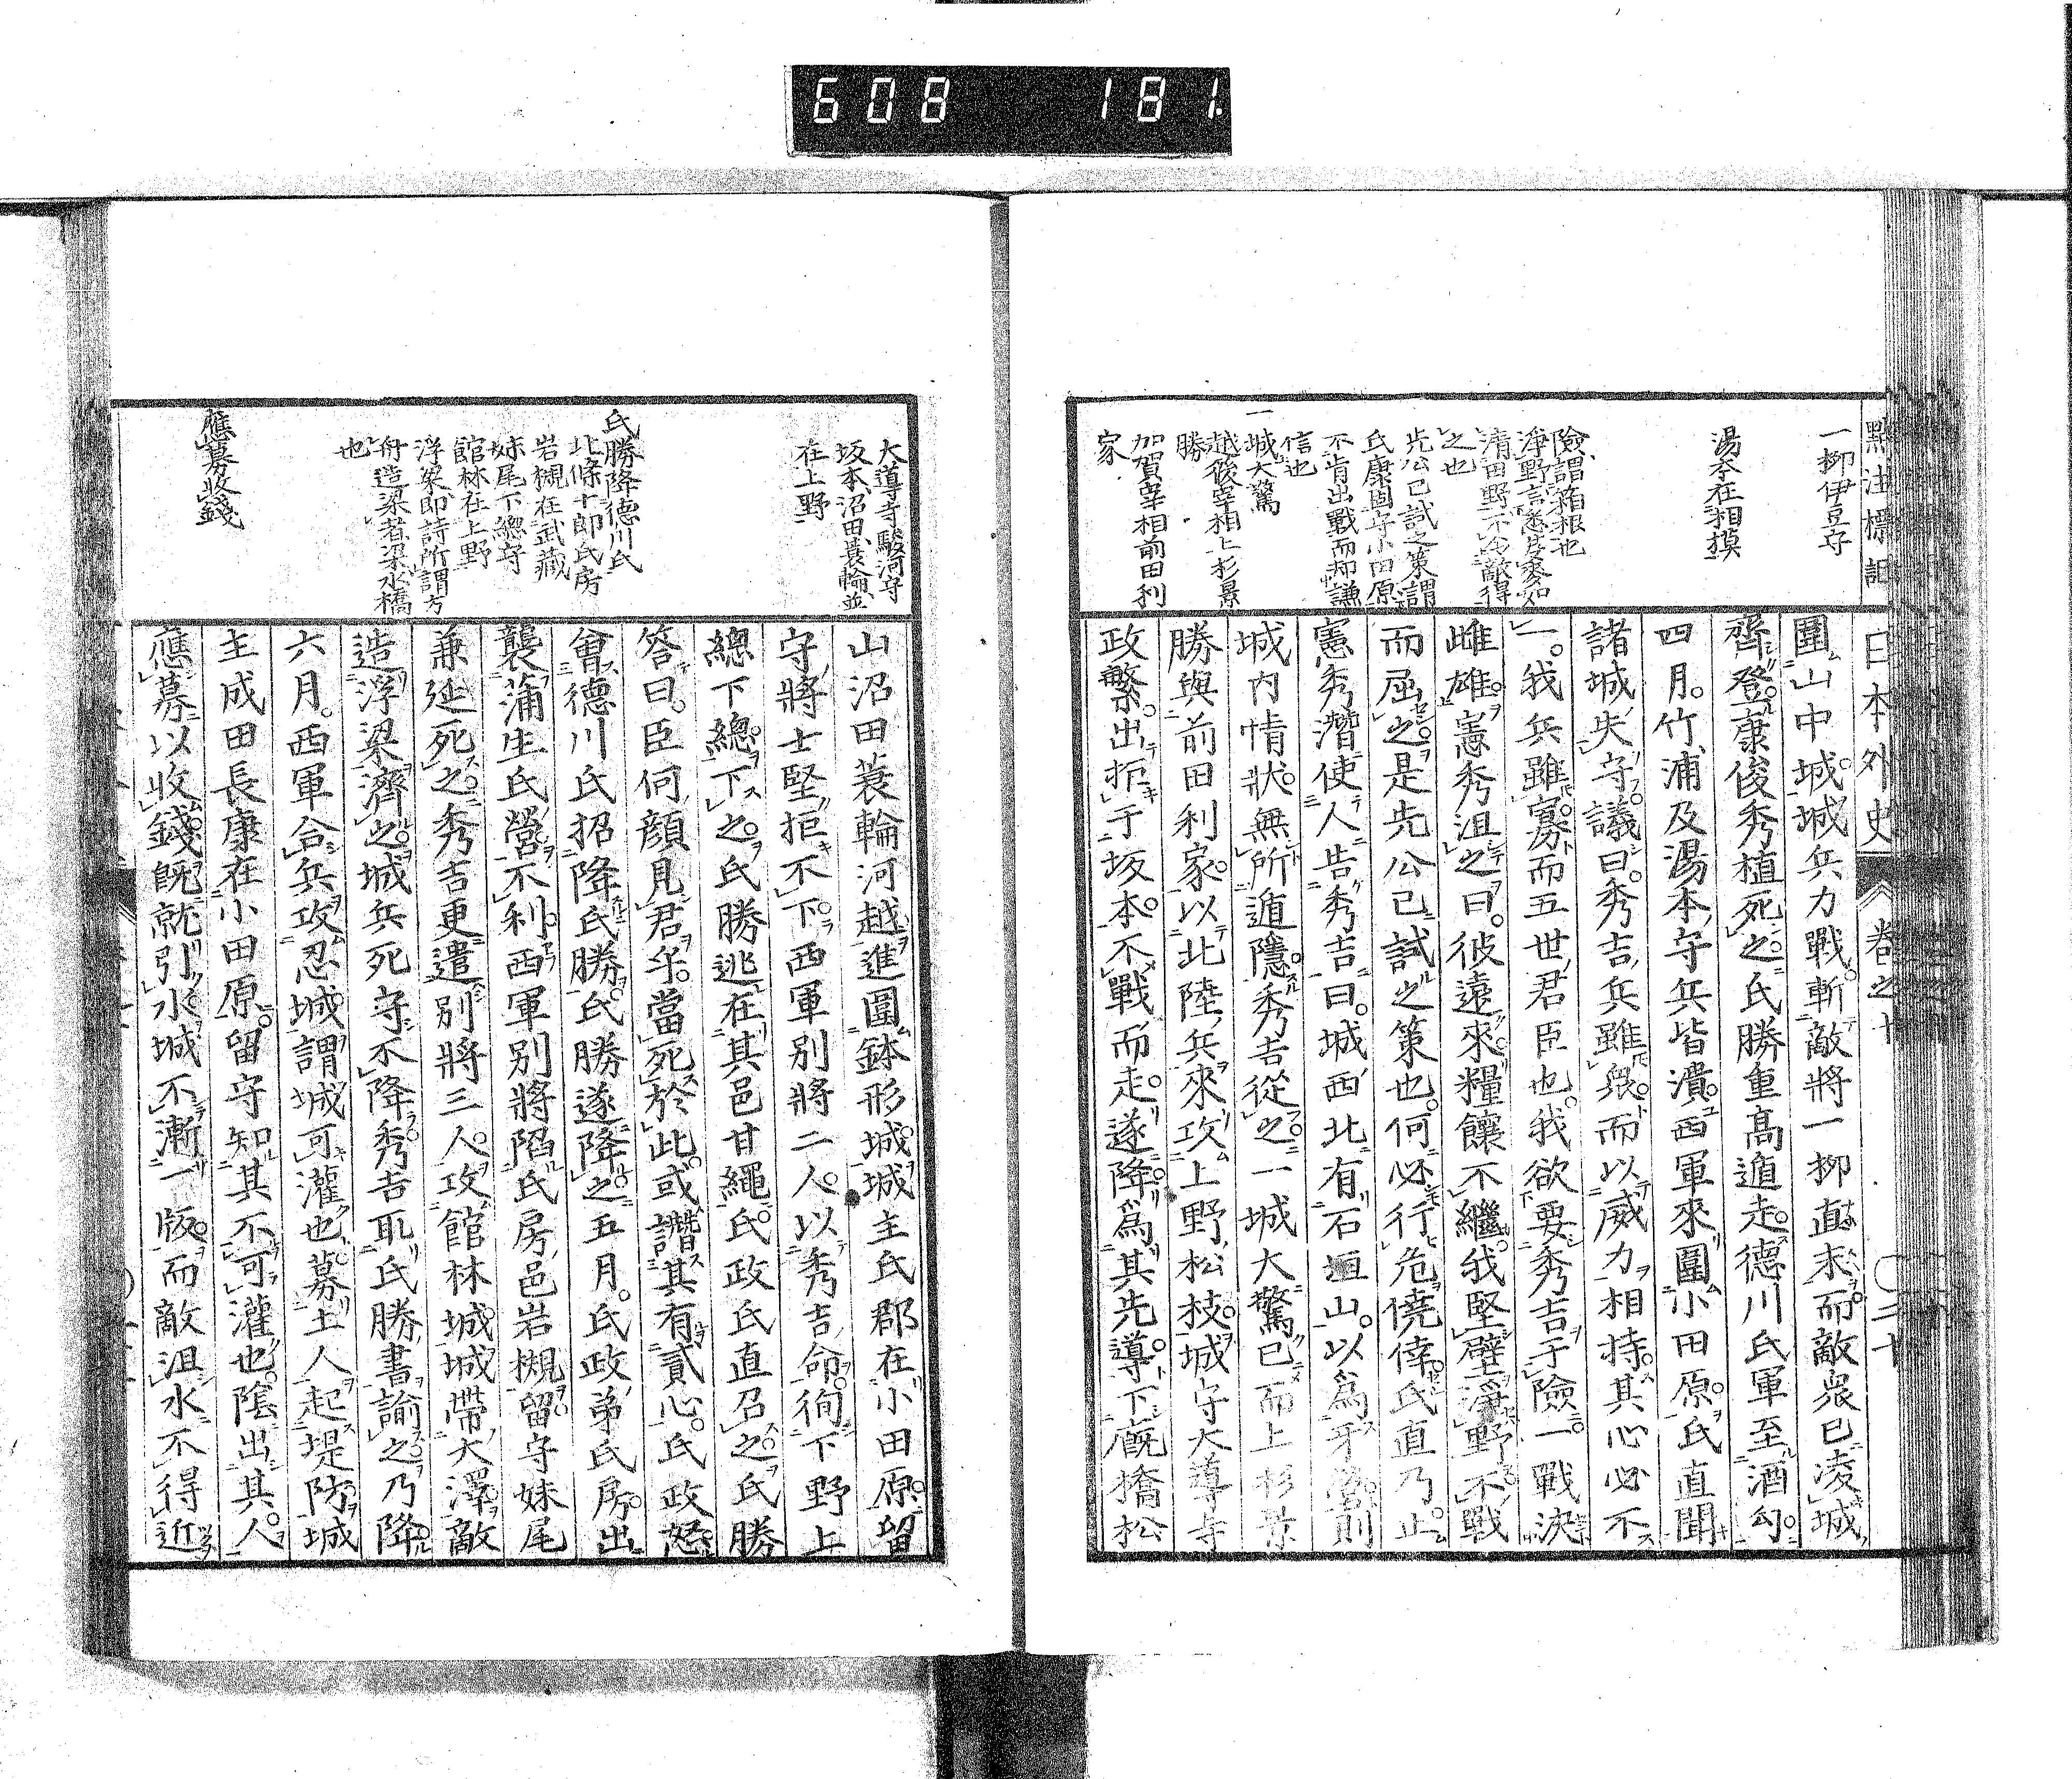 608 181.
點注標記
日本外史
卷之十
〇二十
一柳伊豆守
湯本在相摸
險謂箱根也
淨野言悉芟麥如
清田野不令敵得
之也
先公已試之策謂
氏康固守小田原
不肯出戰而却謙
信也
一城大驚
越後宰相上杉景
勝
加賀宰相前田利
家
圍山中城城兵力戰斬敵將一柳直末而敵衆已凌城
齊登康俊秀植死之氏勝重高遁走德川氏軍至酒勾
四月。竹浦及湯本守兵皆潰西軍來圍小田原氏直聞
諸城失守議曰。秀吉兵雖衆而以威力相持其心必不
一。我兵雖寡而五世君臣也。我欲要秀吉于險一戰決
雌雄憲秀沮之曰。彼遠來糧饟不繼我堅壁淨野不戰
而屈之是先公已試之策也。何必行危僥倖氏直乃止
憲秀潛使人告秀吉曰。城西北有石垣山。以爲牙營則
城內情狀無所遁隱秀吉從之一城大驚已而上杉景
勝與前田利家以北陸兵來攻上野松枝城守大導寺
政繁出拒于坂本。不戰而走。遂降爲其先導。下廐橋松
大導寺駿河守
坂本、沼田、蓑輪、並
在上野
氏勝降德川氏
北條十郎氏房
岩槻在武藏
妹尾下總守
館林在上野
浮梁即詩所謂方
舟造梁者梁水橋
也
應募收錢
山沼田蓑輪河越進圍鉢形城城主氏郡在小田原留
守將士堅拒不下西軍別將二人以秀吉命徇下野上
總下總下之氏勝逃在其邑甘繩氏政氏直召之氏勝
答曰。臣何顏見君乎。當死於此或譖其有貳心。氏政怒
會德川氏招降氏勝氏勝遂降之五月。氏政弟氏房出
襲蒲生氏營不利西軍別將陷氏房邑岩槻留守妹尾
兼延死之秀吉更遣別將三人攻館林城城帶大澤敵
造浮梁濟之城兵死守不降秀吉取氏勝書諭之乃降
六月。西軍合兵攻忍城謂城可灌也募土人起堤防城
主成田長康在小田原留守知其不可灌也。陰出其人
應募以收錢既就引水城不漸一版而敵沮水不得近